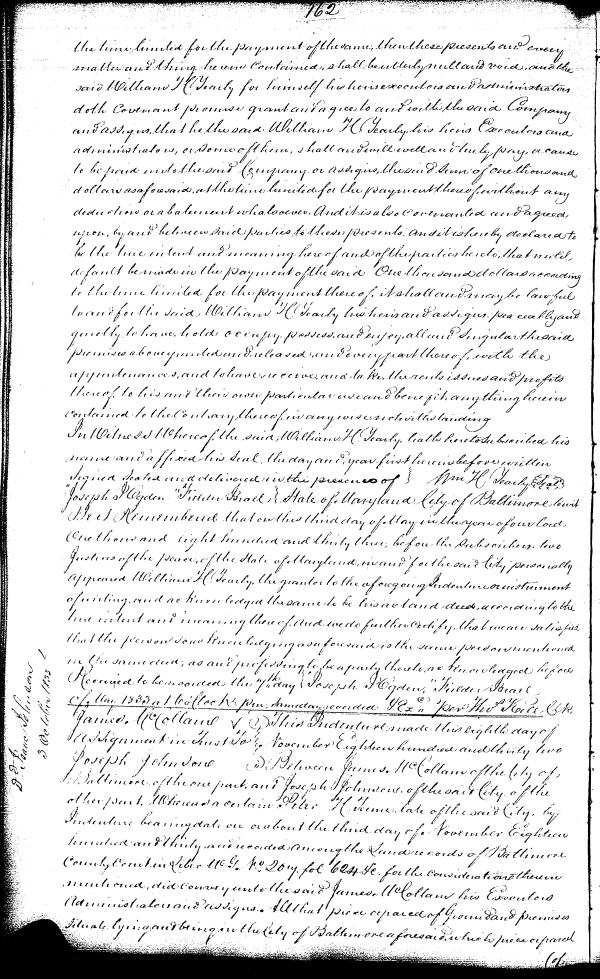 162
the time limited for the payment of the same, then these presents and every
matter and thing herein contained, shall be utterly null and void, and the
said William H. Yearly for himself his heirs executors and administrators
doth Covenant promise grant and agree to and with the said Company
and assigns, that he the said William H. Yearly, his heirs Executors and
administrators, or some of them, shall and will well and truly pay, or cause
to be paid unto the said Company or assigns, the said Sum of one thousand
dollars as aforesaid, at the time limited for the payment thereof, without any
deduction or abatement whatsoever. And it is also Covenanted and agreed
upon, by and between said parties to these presents. And it is hereby declared to
be the true intent and meaning hereof and of the parties hereto, that until
default be made in the payment of the said One thousand dollars according
to the time limited for the payment thereof, it shall and may be lawful
to and for the said, William H. Yearly his heirs and assigns, peaceably and
quietly to have, hold occupy, possess, and enjoy, all and Singular the said
premises above granted and released, and every part thereof, with the
appurtenances, and to have receive, and take the rents issues and profits
thereof, to his and their own particular use and benefit, any thing herein
contained to the Contrary thereof, in any wise notwithstanding
In Witness Whereof the said, William H. Yearly, hath hereto subscribed his
name and affixed his seal, the day and year first herein before written
Signed Sealed and delivered in the presence of } Wm H. Yearly
Joseph Ogden Fielder Israel } State of Maryland City of Baltimore to wit
Be it Remembered that on this third day of May in the year of our Lord
One thousand eight hundred and thirty three, before the subscribers two
Justices of the peace, of the State of Maryland, in and for the said City, personally
appeared William H. Yearly, the grantor to the aforegoing Indenture or instrument
of writing, and acknowledged the same to be his act and deed, according to the
true intent and meaning thereof. And we do further Certify, that we are satisfied
that the person so acknowledging as aforesaid is the same person mentioned
in the same deed, as and professing to be a party thereto, acknowledged before
Received to be recorded the 7th day } Joseph Ogden, Fielder Israel
of May 1833 at 1 o'Clock pm, same day recorded & Exd per
James McCollam } This Indenture made this eighth day of
Assignment in Trust To } November Eighteen hundred and thirty two
Joseph Johnson } Between James McCollam of the City of
Baltimore, of the one part, and Joseph Johnson, of the said City, of the
other part. Whereas a certain Peter H. late of the said City, by
Indenture bearing date on or about the third day of November Eighteen
hundred and thirty, and recorded among the Land records of Baltimore
County Court in Liber W.G. No 209, fol 624 &c. for the consideration therein
mentioned, did convey unto the said James McCollam his Executors
Administrators and assigns. All that piece or parcel of Ground and premises
situate lying and being in the City of Baltimore aforesaid, which piece or parcel
of
Johnson
3 October 1833